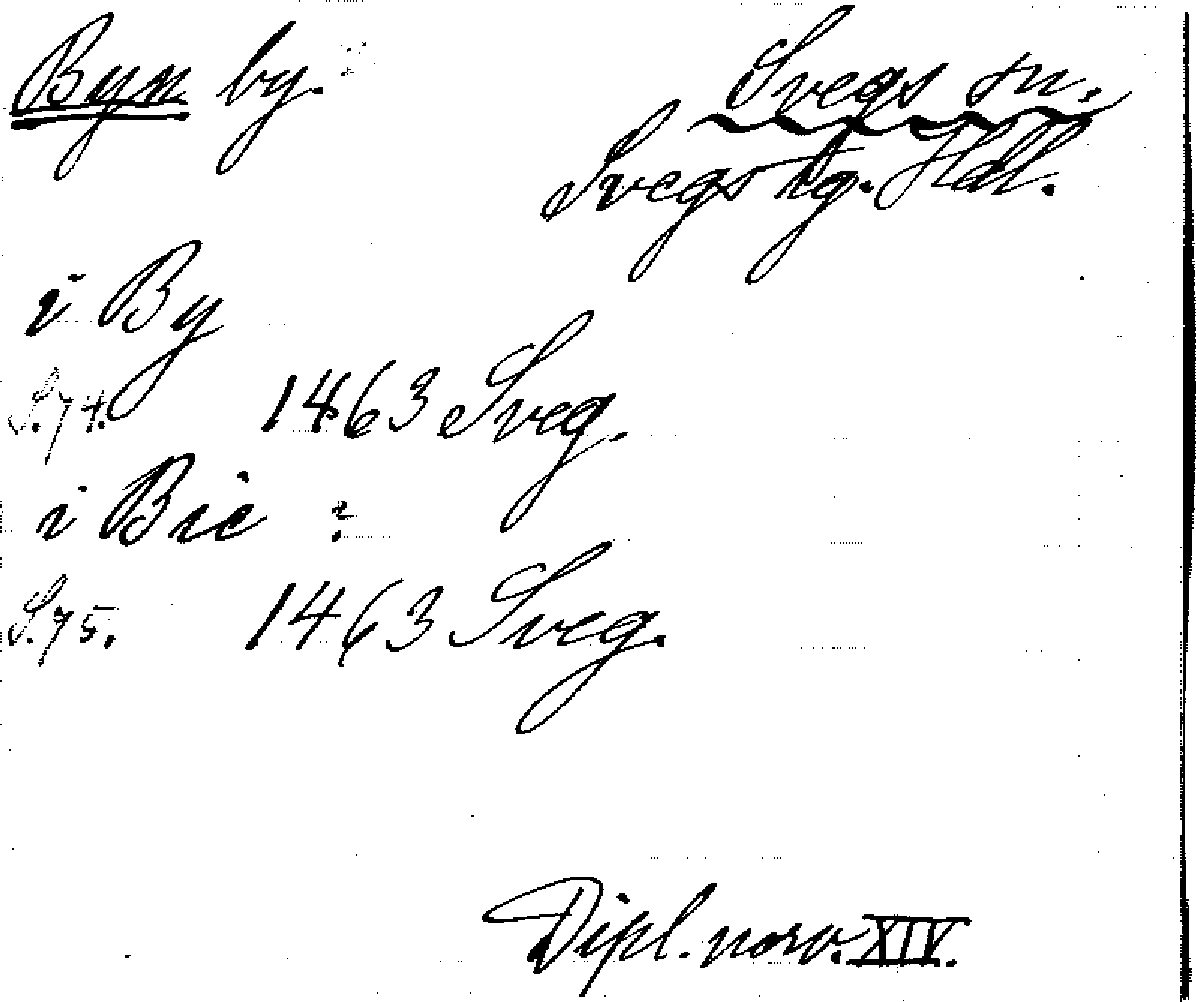 Byn by.
Svegs sn.
Svegs tg. Hdl.
i By
S. 74. 1463 Sveg.
i Bie :
S. 75. 1463 Sveg.
Dipl. norv. XIV.